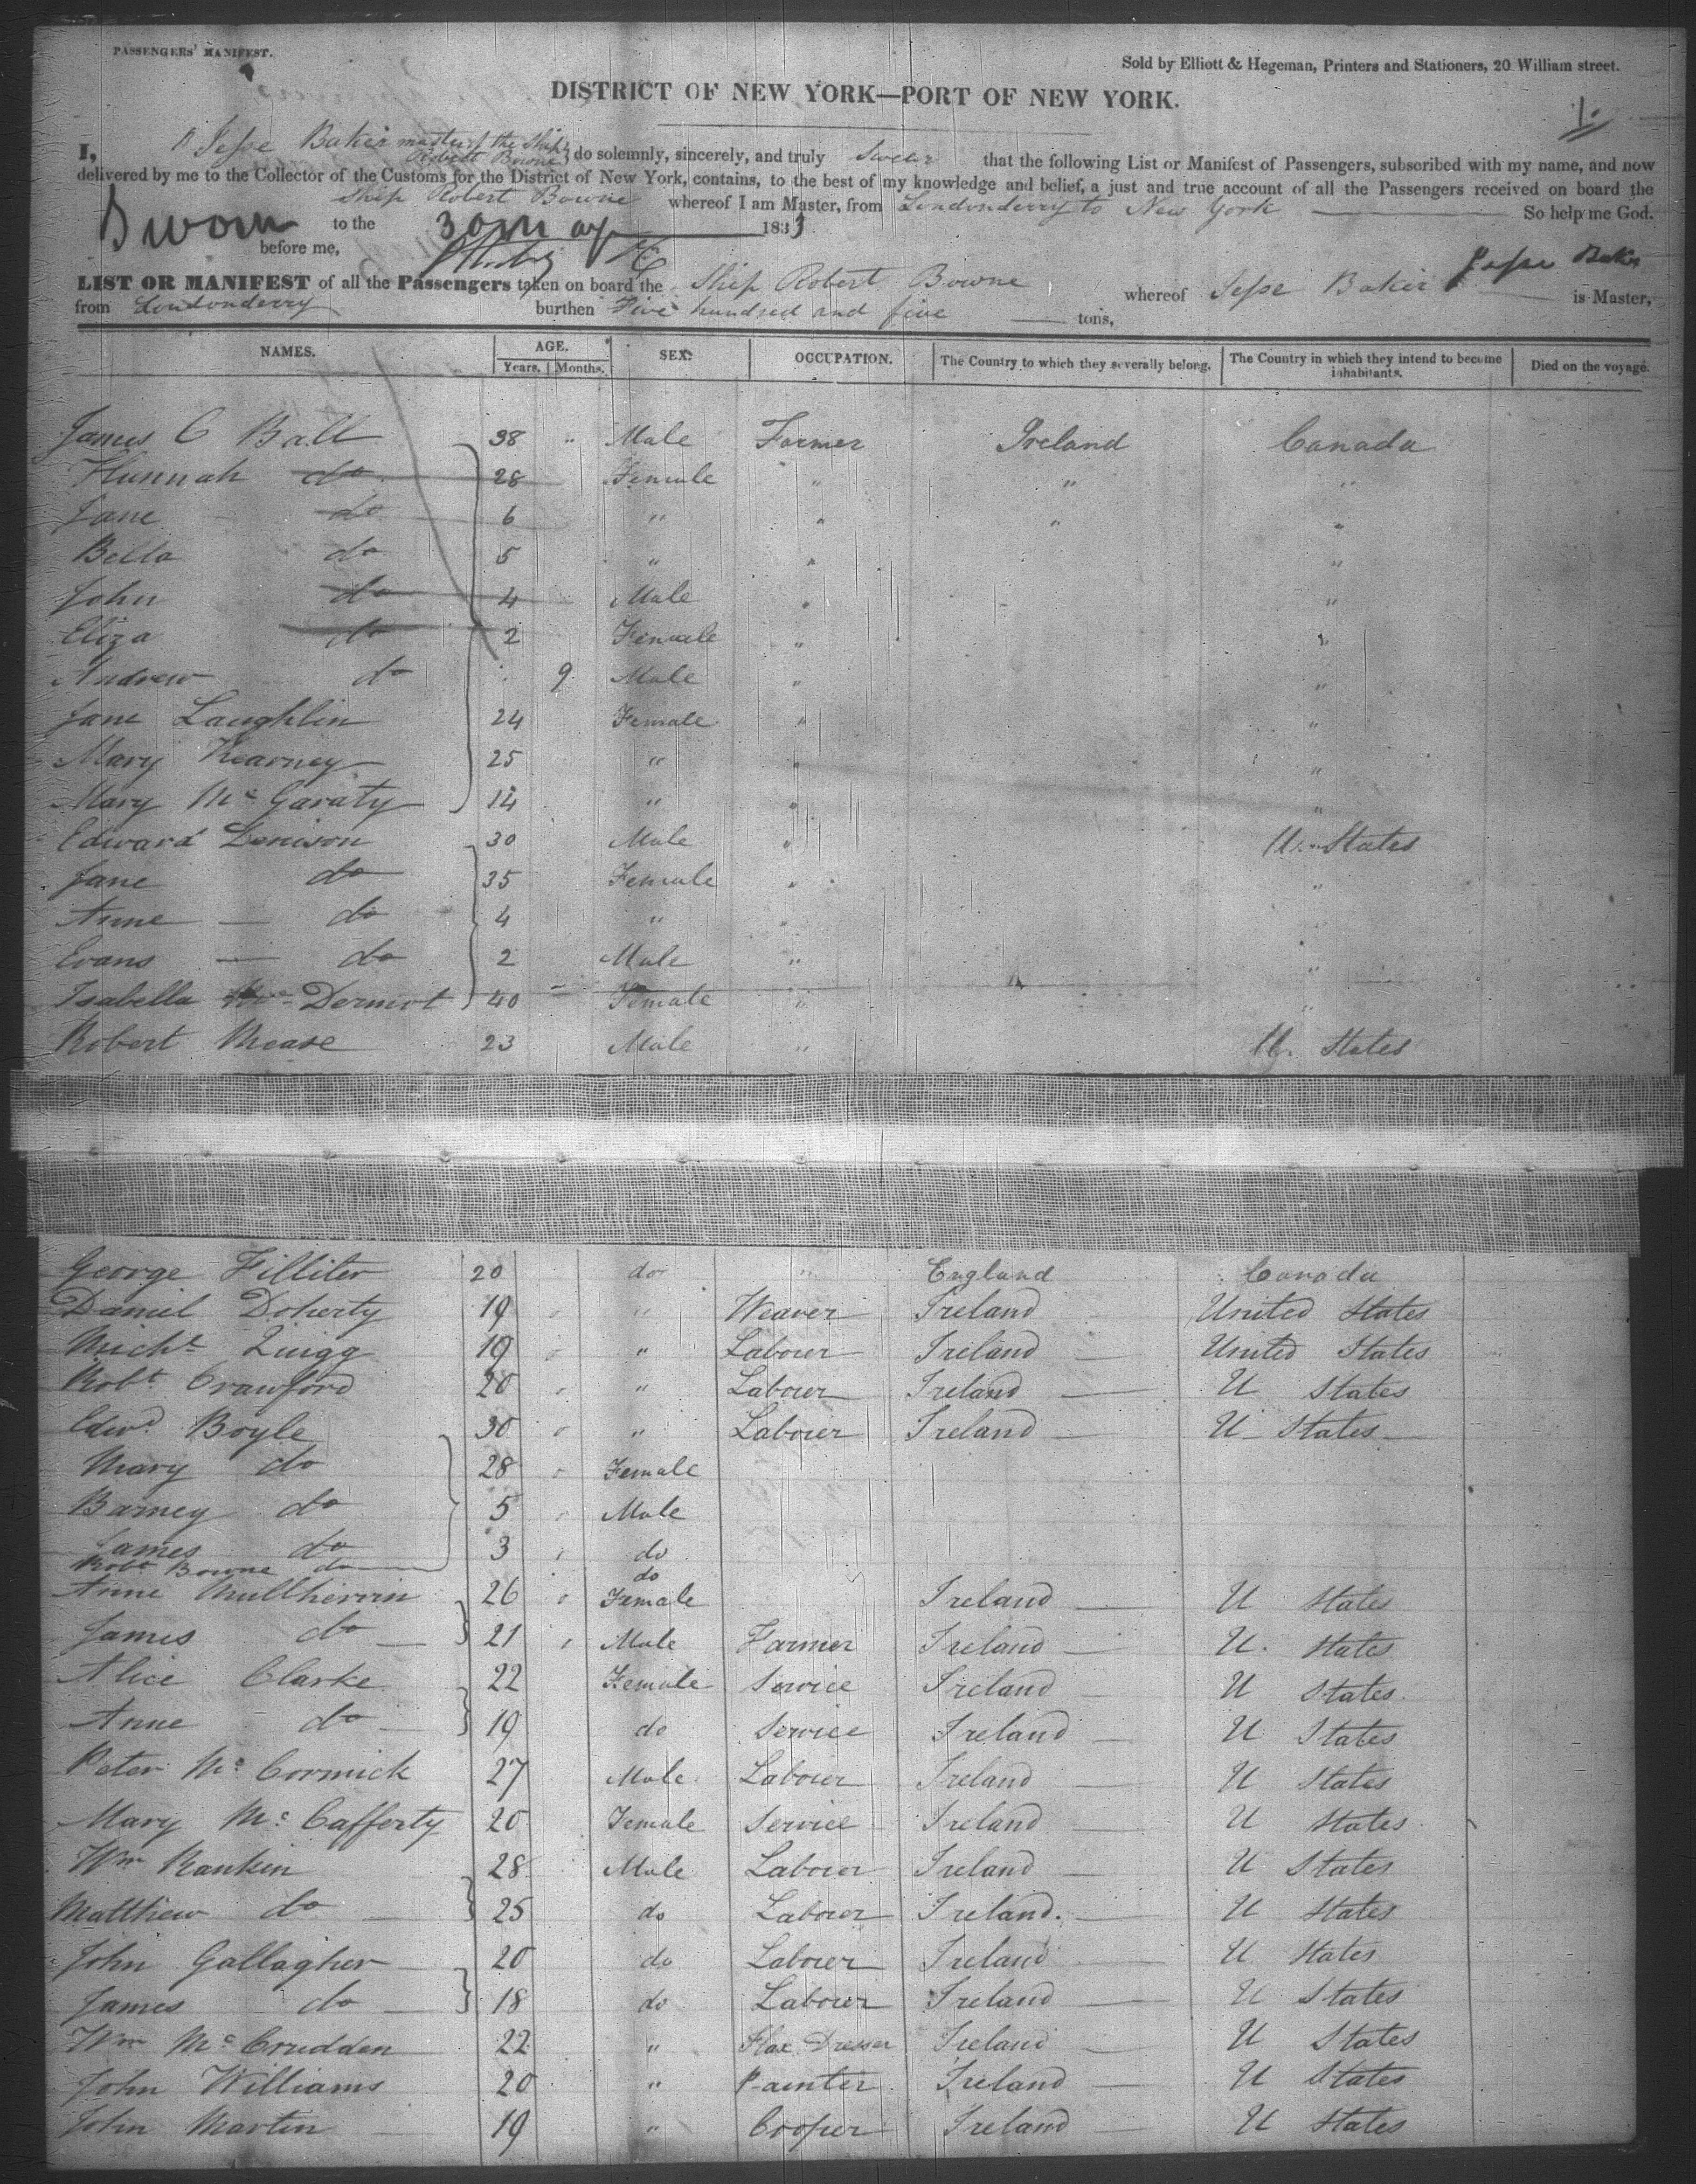 PASSENGERS' MANIFEST.
Sold by Elliott & Hegeman, Printers and Stationers, 20 William street.
DISTRICT OF NEW YORK—PORT OF NEW YORK.
1.
I, Jesse Baker master of the Ship Robert Bowne do solemnly, sincerely, and truly Swear that the following List or Manifest of Passengers, subscribed with my name, and now
delivered by me to the Collector of the Customs for the District of New York, contains, to the best of my knowledge and belief, a just and true account of all the Passengers received on board the
Ship Robert Bowne whereof I am Master, from Londonderry to New York So help me God.
Sworn to the 30 May 1833
before me,
Jesse Baker
LIST OR MANIFEST of all the Passengers taken on board the Ship Robert Bowne whereof Jesse Baker is Master,
from Londonderry burthen Five hundred and five tons,
NAMES. AGE. SEX. OCCUPATION. The Country to which they severally belong. The Country in which they intend to become inhabitants. Died on the voyage.
Years. Months.
James C Ball 38 " Male Farmer Ireland Canada
Hannah do 28 Female " " "
Jane do 6 " " " "
Bella do 5 " " "
John do 4 Male " "
Eliza do 2 Female " "
Andrew do 9 Male " "
Jane Laughlin 24 Female " "
Mary Kearney 25 " " "
Mary Mc Garaty 14 " " "
Edward Denison 30 Male " U. States
Jane do 35 Female " "
Anne do 4 " " "
Evans do 2 Male " "
Isabella Mc Dermot 40 Female " "
Robert Mease 23 Male " U. States
George Filliter 20 do " England Canada
Daniel Doherty 19 " Weaver Ireland United States
Michl Quigg 19 " Labourer Ireland United States
Robt Crawford 20 " Labourer Ireland U States
Edwd Boyle 30 " Labourer Ireland U States
Mary do 28 Female
Barney do 5 Male
James do 3 do
Robt Bowne do do
Anne Mullherrin 26 Female Ireland U States
James do 21 Male Farmer Ireland U. States
Alice Clarke 22 Female Service Ireland U States
Anne do 19 do Service Ireland U States
Peter Mc Cormick 27 Male Labourer Ireland U States
Mary Mc Cafferty 20 Female Service Ireland U States
Wm Rankin 28 Male Labourer Ireland U States
Matthew do 25 do Labourer Ireland. U States
John Gallagher 20 do Labourer Ireland U States
James do 18 do Labourer Ireland U States
Wm Mc Crudden 22 " Flax Dresser Ireland U States
John Williams 20 " Painter Ireland U States
John Martin 19 " Cooper Ireland U States